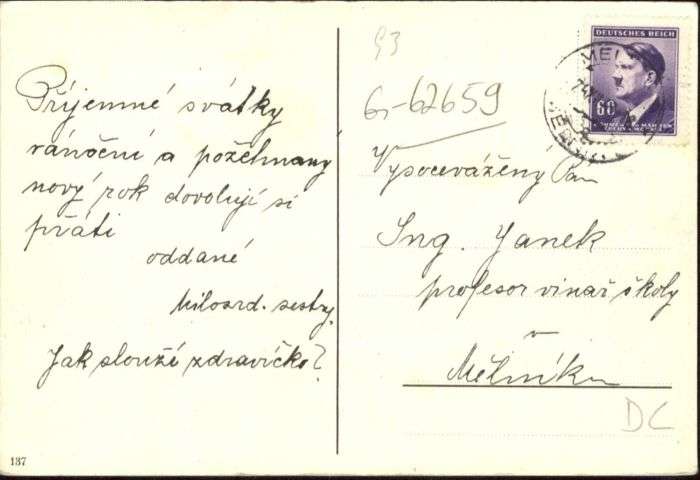 Příjemné svátky
vánoční a požehnaný
nový rok dovolují si
přáti
oddané
Milosrd. sestry.
Jak slouží zdravíčko?
137
G-62659
DEUTSCHES REICH
60
MĚL
Vysocevážený Pan
Ing. Janek
profesor vinař školy
v
Mělníku
DC